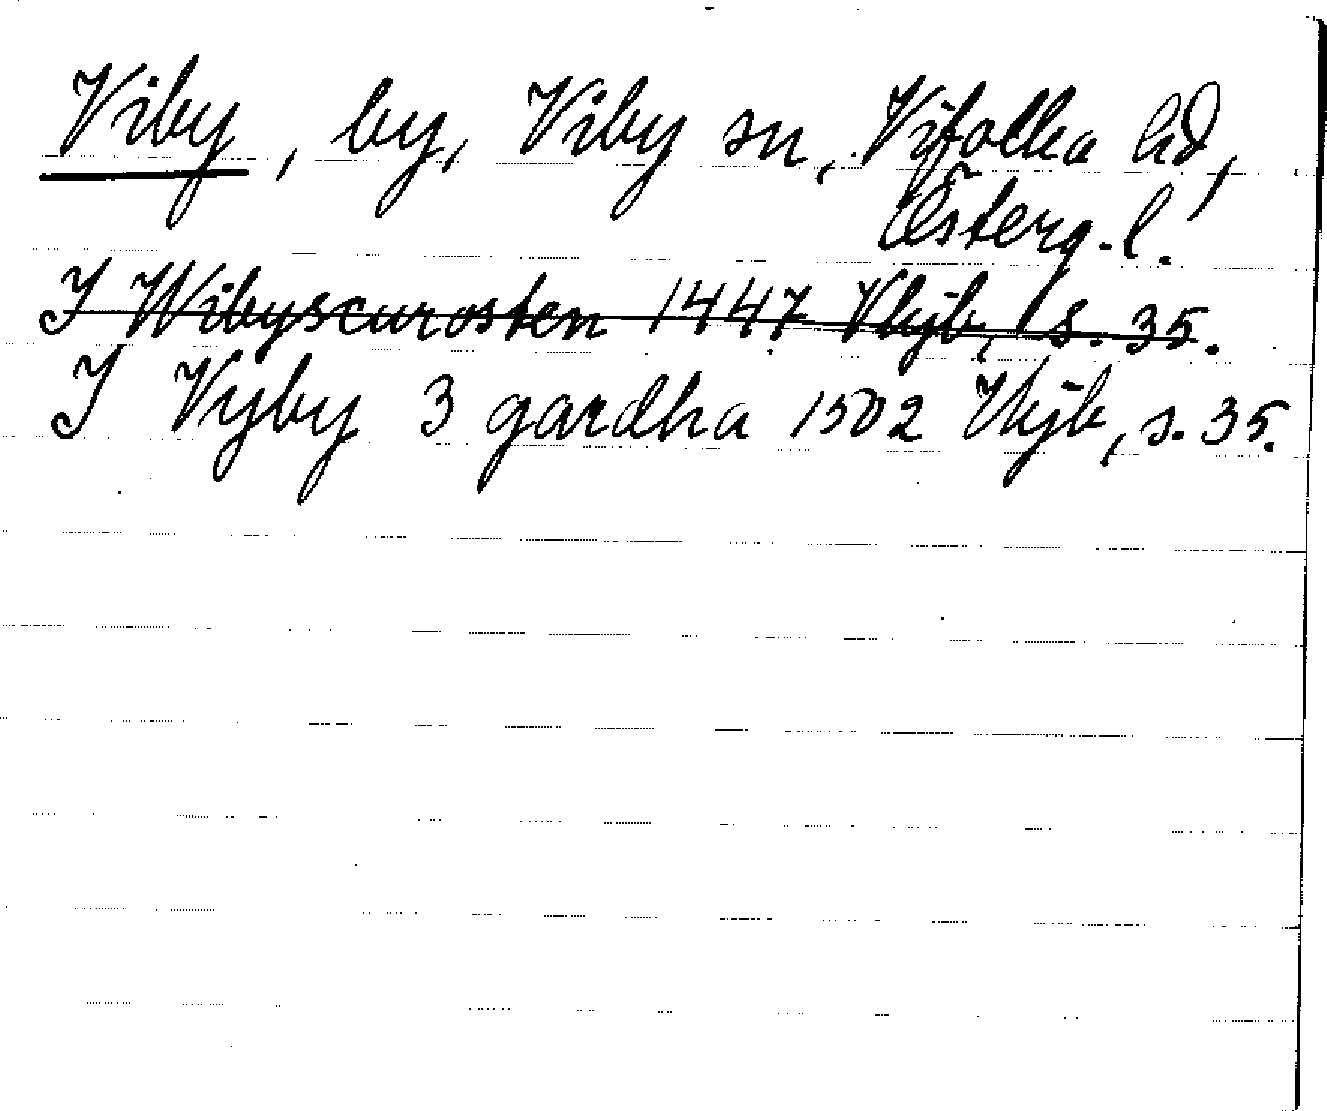 Viby, by, Viby sn, Vifolka hd,
Österg. l.
I Wibyscurosten 1447 Vkjb, s. 35.
I Vyby 3 gardha 1502 Vkjb, s. 35.